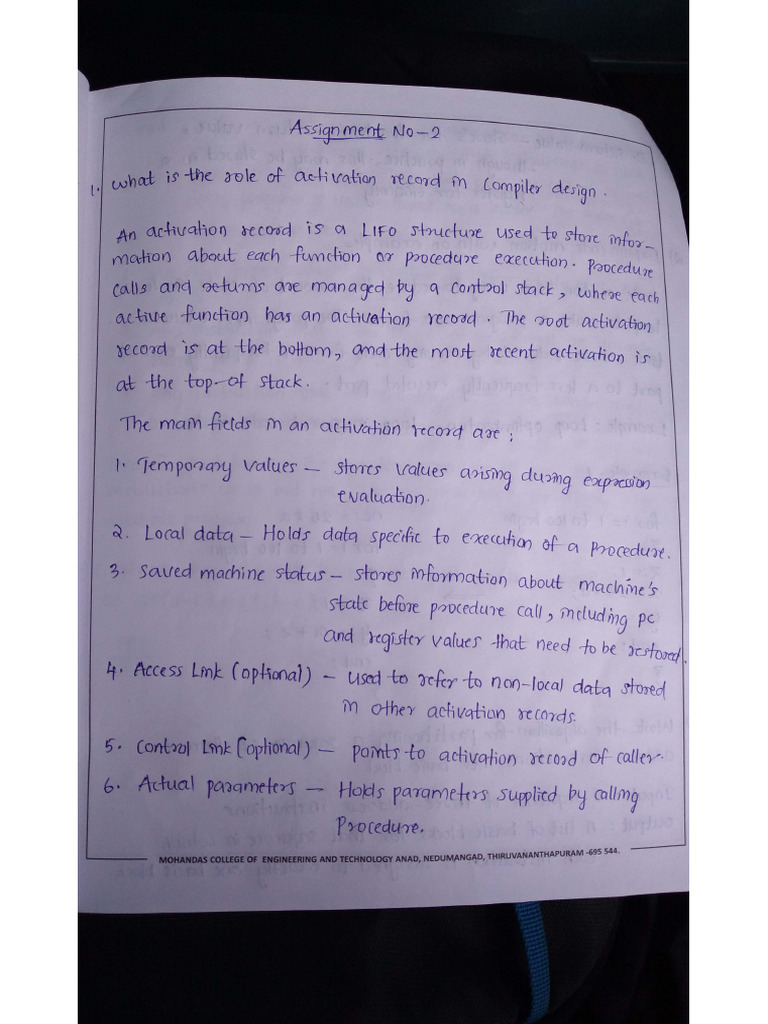 Assignment No-2
1. What is the role of activation record in Compiler design.
An activation record is a LIFO structure used to store infor-
mation about each function or procedure execution. Procedure
calls and returns are managed by a control stack, where each
active function has an activation record. The root activation
record is at the bottom, and the most recent activation is
at the top-of stack.
The main fields in an activation record are:
1. Temporary values – stores values arising during expression
evaluation.
2. Local data – Holds data specific to execution of a procedure.
3. Saved machine status – stores information about machine's
state before procedure call, including pc
and register values that need to be restored.
4. Access Link (optional) – used to refer to non-local data stored
in other activation records.
5. Control Link (optional) – points to activation record of caller.
6. Actual parameters – Holds parameters supplied by calling
Procedure.
MOHANDAS COLLEGE OF ENGINEERING AND TECHNOLOGY ANAD, NEDUMANGAD, THIRUVANANTHAPURAM -695 544.